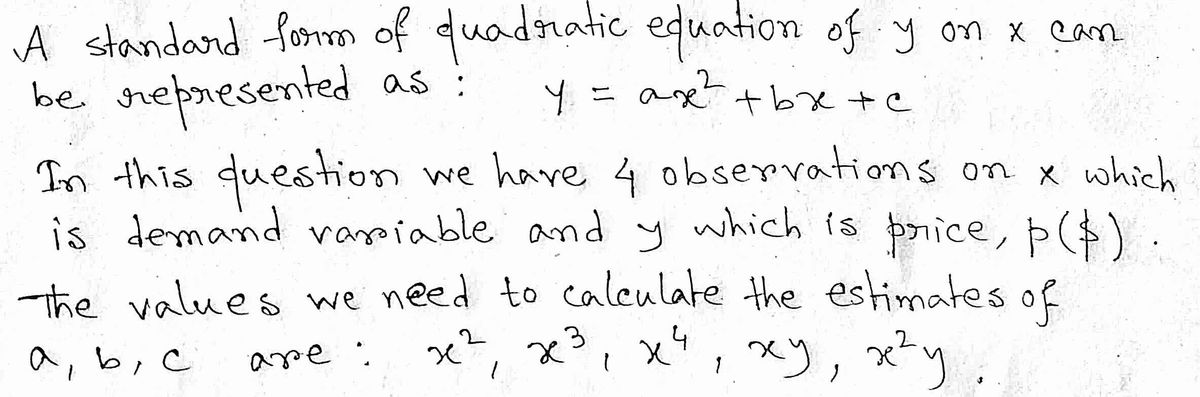 A standard form of quadratic equation of y on x can
be represented as : y = ax² + bx + c
In this question we have 4 observations on x which
is demand variable and y which is price, p($).
The values we need to calculate the estimates of
a, b, c are : x², x³, x⁴, xy, x²y.